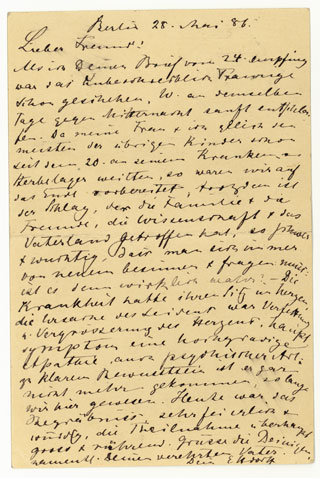 Berlin 28. Mai 86.
Lieber Freund!
Als ich Deinen Brief vom 24. empfing
war das Unbeschreiblich Traurige
schon geschehen, W. an demselben
Tage gegen Mitternacht sanft entschla-
fen. Da meine Frau & ich gleich den
meisten der übrigen Kinder schon
seit dem 20. an seinem Kranken- &
Sterbelager weilten, so waren wir auf
das Ende vorbereitet, trotzdem ist
der Schlag, der die Familie & die
Freunde, die Wissenschaft & das
Vaterland getroffen hat, so schwer
& wuchtig, dass man sich immer
von neuem besinnen & fragen muss:
ist es denn wirklich wahr? – Die
Krankheit hatte ihren Sitz im Herzen,
die Ursache des Leidens war Verfettung
& Vergrösserung des Herzens, Haupt-
symptom eine hochgradige
Apathie auch psychischer Art.
Zu klarem Bewusstsein ist er gar
nicht mehr gekommen, so lange
wir hier gewesen. Heute war das
Begräbniss, sehr feierlich &
würdig, die Theilnahme überhaupt
gross & rührend. Grüsse die Deinigen
namentl. Deinen verehrten Vater.
Dein